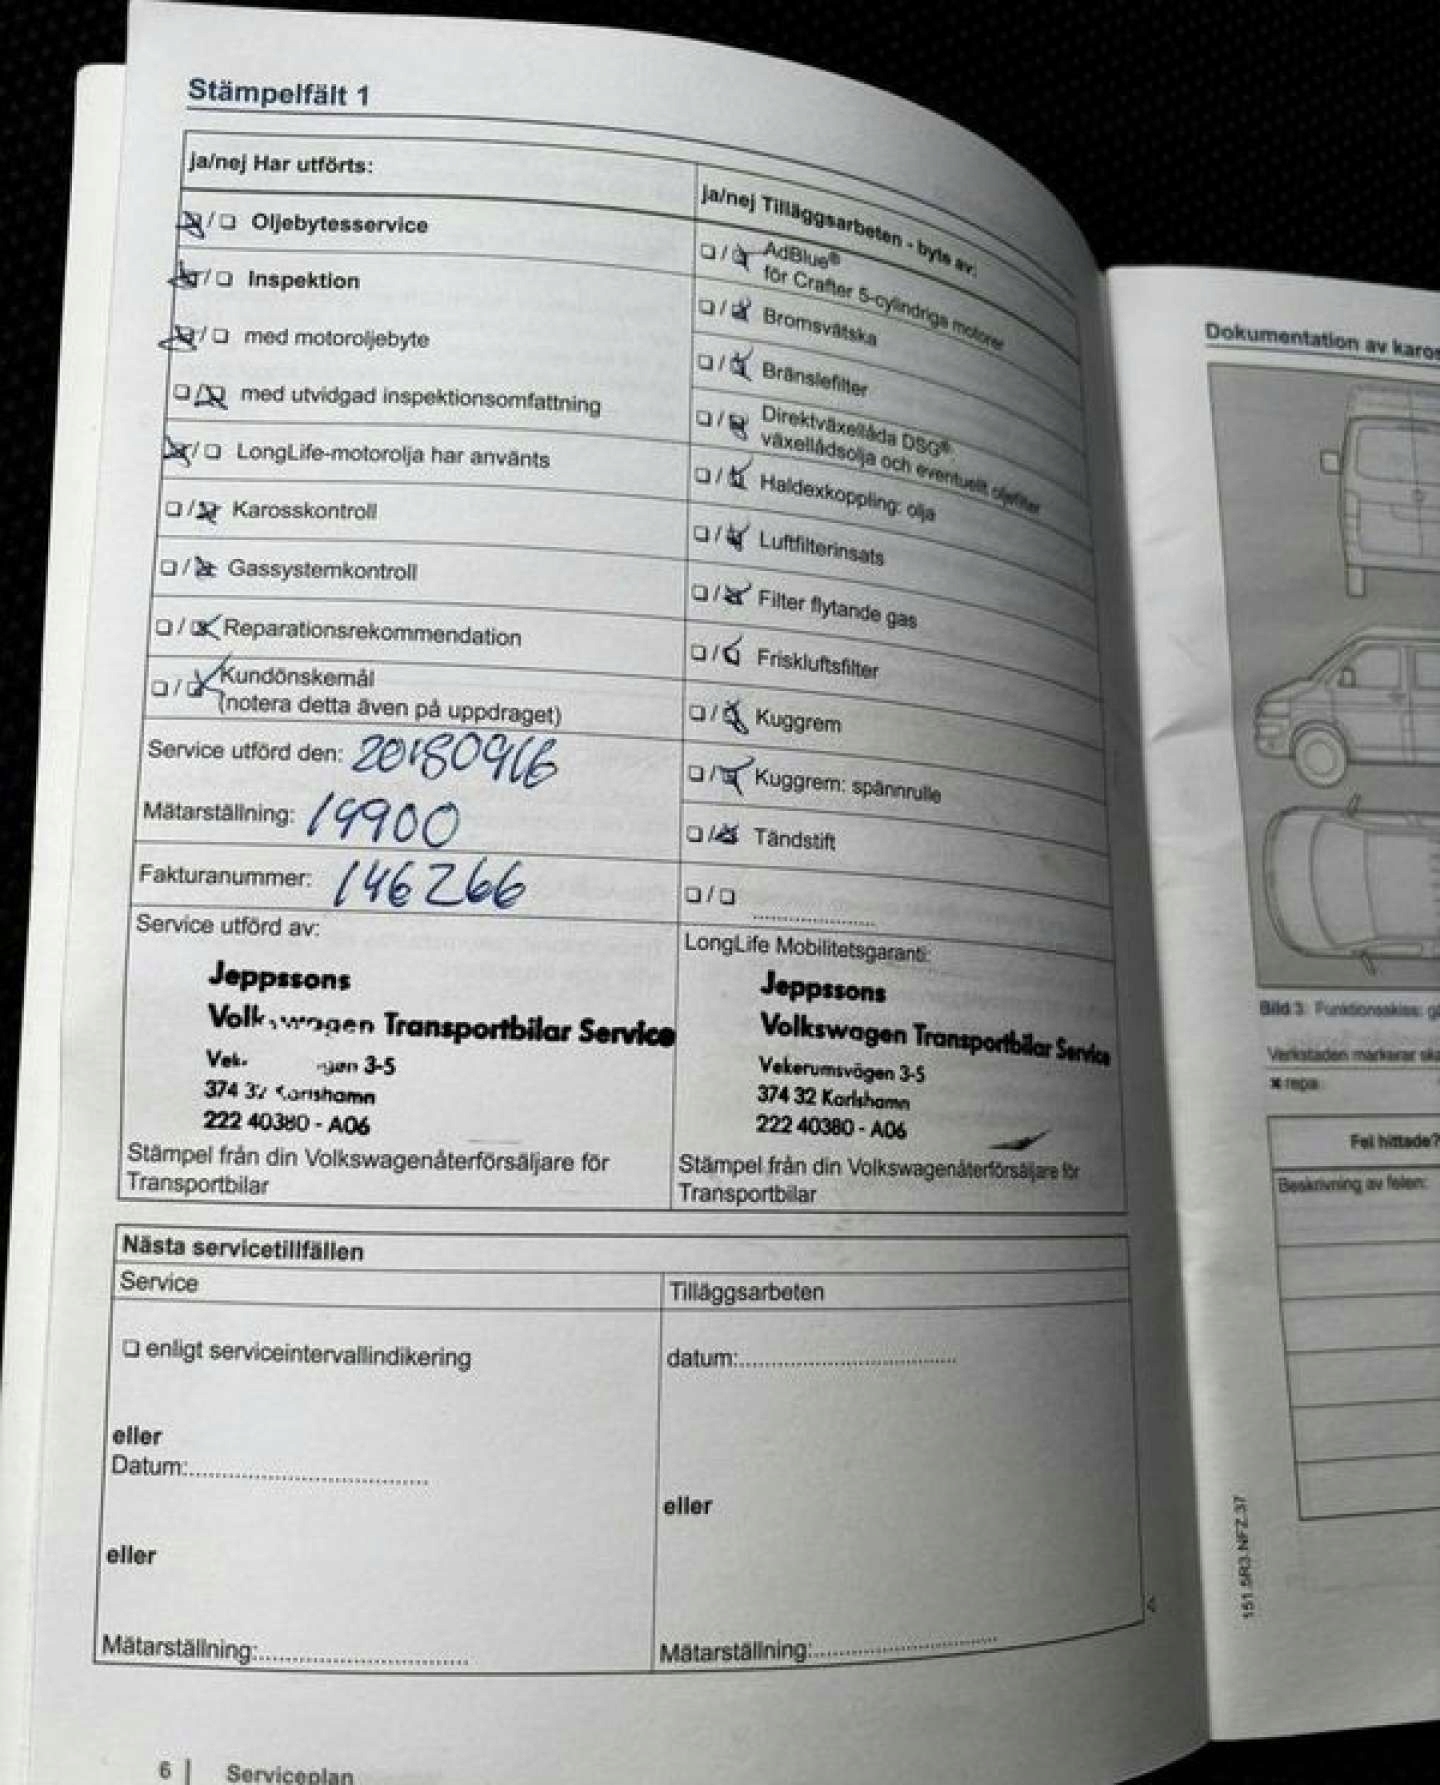 Stämpelfält 1
ja/nej Har utförts:
Oljebytesservice
Inspektion
med motoroljebyte
med utvidgad inspektionsomfattning
LongLife-motorolja har använts
Karosskontroll
Gassystemkontroll
Reparationsrekommendation
Kundönskemål
(notera detta även på uppdraget)
Service utförd den: 20180916
Mätarställning: 19900
Fakturanummer: 146266
Service utförd av:
Jeppssons
Volkswagen Transportbilar Service
3-5
374 32 Karlshamn
222 40380 - A06
Stämpel från din Volkswagenåterförsäljare för
Transportbilar
ja/nej Tilläggsarbeten - byte av:
AdBlue®
för Crafter 5-cylindriga motorer
Bromsvätska
Bränslefilter
Direktväxellåda DSG®:
växellådsolja och eventuellt oljefilter
Haldexkoppling: olja
Luftfilterinsats
Filter flytande gas
Friskluftsfilter
Kuggrem
Kuggrem: spännrulle
Tändstift
LongLife Mobilitetsgaranti:
Jeppssons
Volkswagen Transportbilar Service
Vekerumsvägen 3-5
374 32 Karlshamn
222 40380 - A06
Stämpel från din Volkswagenåterförsäljare för
Transportbilar
Nästa servicetillfällen
Service
enligt serviceintervallindikering
eller
Datum:
eller
Mätarställning:
Tilläggsarbeten
datum:
eller
Mätarställning:
6 | Serviceplan
Dokumentation av karos
Bild 3 Funktionsskiss:
Verkstaden markerar ska
repa
Fel hittade?
Beskrivning av felen:
151.5R3.NFZ.37